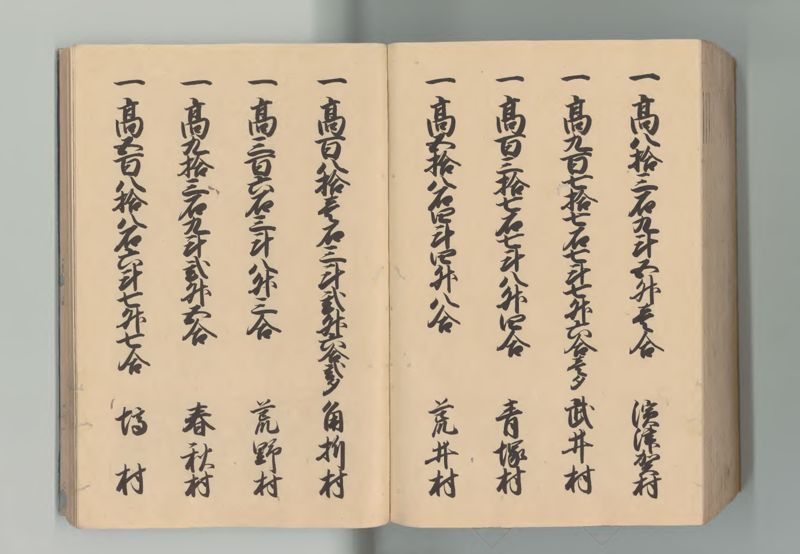 一 髙八拾三石九斗五升壱合 濱津賀村
一 髙九百七拾七石七斗七升六合壱夕 武井村
一 髙百三拾七石七斗八升四合 青塚村
一 髙五拾八石四斗四升八合 荒井村
一 髙百八拾壱石三斗弐升六合弐夕 角折村
一 髙三百六石三斗八升三合 荒野村
一 髙九拾三石九斗弐升五合 春秋村
一 髙五百八拾八石六斗七升七合 塙村